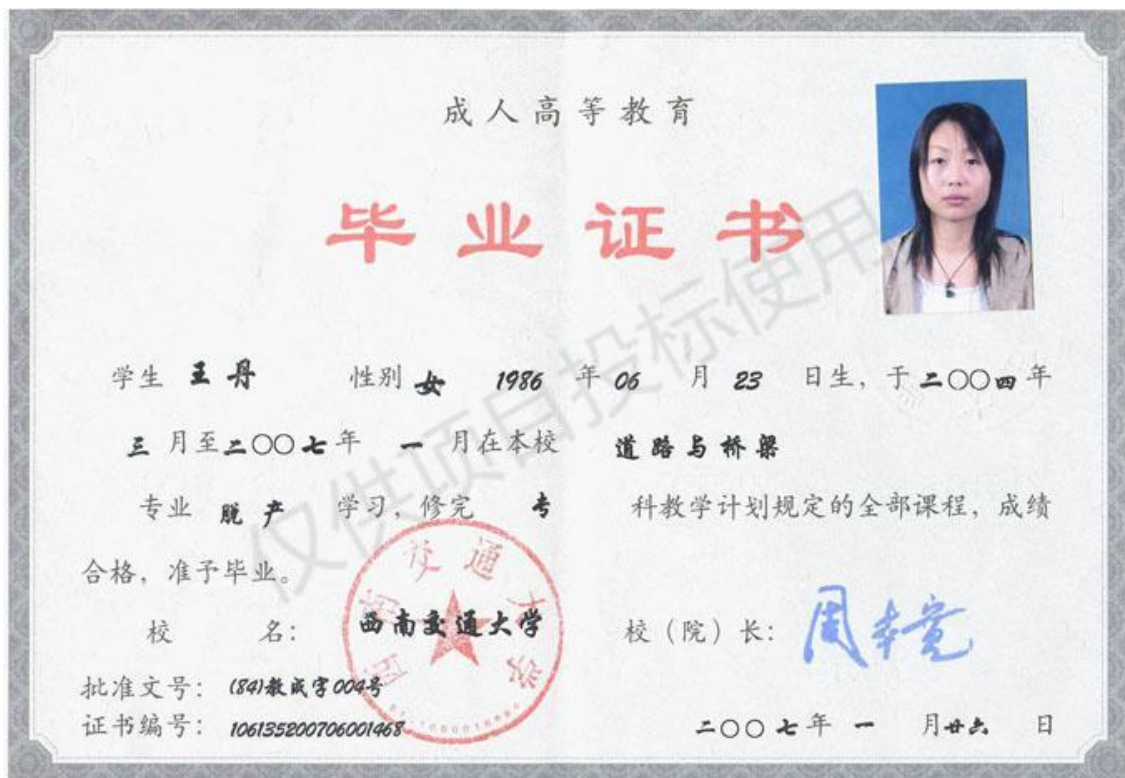 成人高等教育
毕业证书
学生 王丹 性别 女 1986 年 06 月 23 日生，于二〇〇四年
三月至二〇〇七年 一 月在本校 道路与桥梁
专业 脱产 学习，修完 专 科教学计划规定的全部课程，成绩
合格，准予毕业。
校 名： 西南交通大学 校（院）长：
批准文号： (84)教成字004号
证书编号： 106135200706001468 二〇〇七年 一 月廿六 日
西南交通大学
仅供项目投标使用